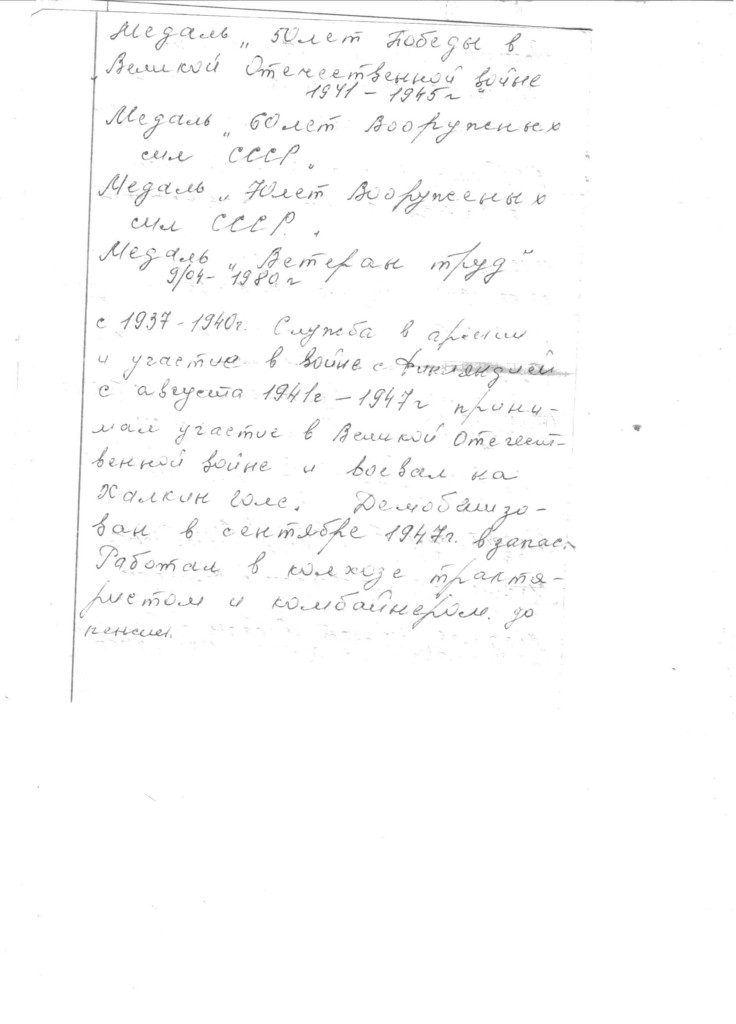 Медаль „ 50 лет Победы в
Великой Отечественной войне
1941 – 1945 г "
Медаль „ 60 лет Вооруженых
сил СССР „
Медаль „ 70 лет Вооруженых
сил СССР. „
Медаль „ Ветеран труд "
9/04 - 1980 г
с 1937 - 1940г. Служба в армии
и участие в войне с Финляндией
с августа 1941г – 1947г прини-
мал участие в Великой Отечест-
венной войне и воевал на
Халкин голе. Демобелизо-
ван в сентябре 1947г. в запас.
Работал в колхозе трактя-
ристом и комбайнёром. до
пенсии.